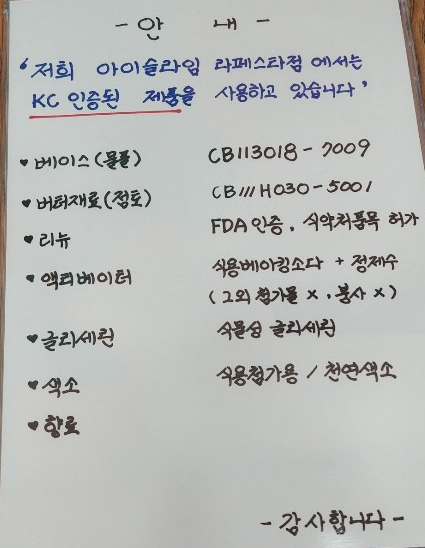 - 안 내 -
'저희 아이슬라임 라페스타점 에서는
KC 인증된 제품을 사용하고 있습니다'
♥ 베이스(물풀) CB113018 - 7009
♥ 버터재료(점토) CB111H030 - 5001
♥ 리뉴 FDA 인증, 식약처품목 허가
♥ 액티베이터 식용베이킹소다 + 정제수
(그외 첨가물 X, 붕사 X)
♥ 글리세린 식물성 글리세린
♥ 색소 식용첨가용 / 천연색소
♥ 향료
- 감사합니다 -